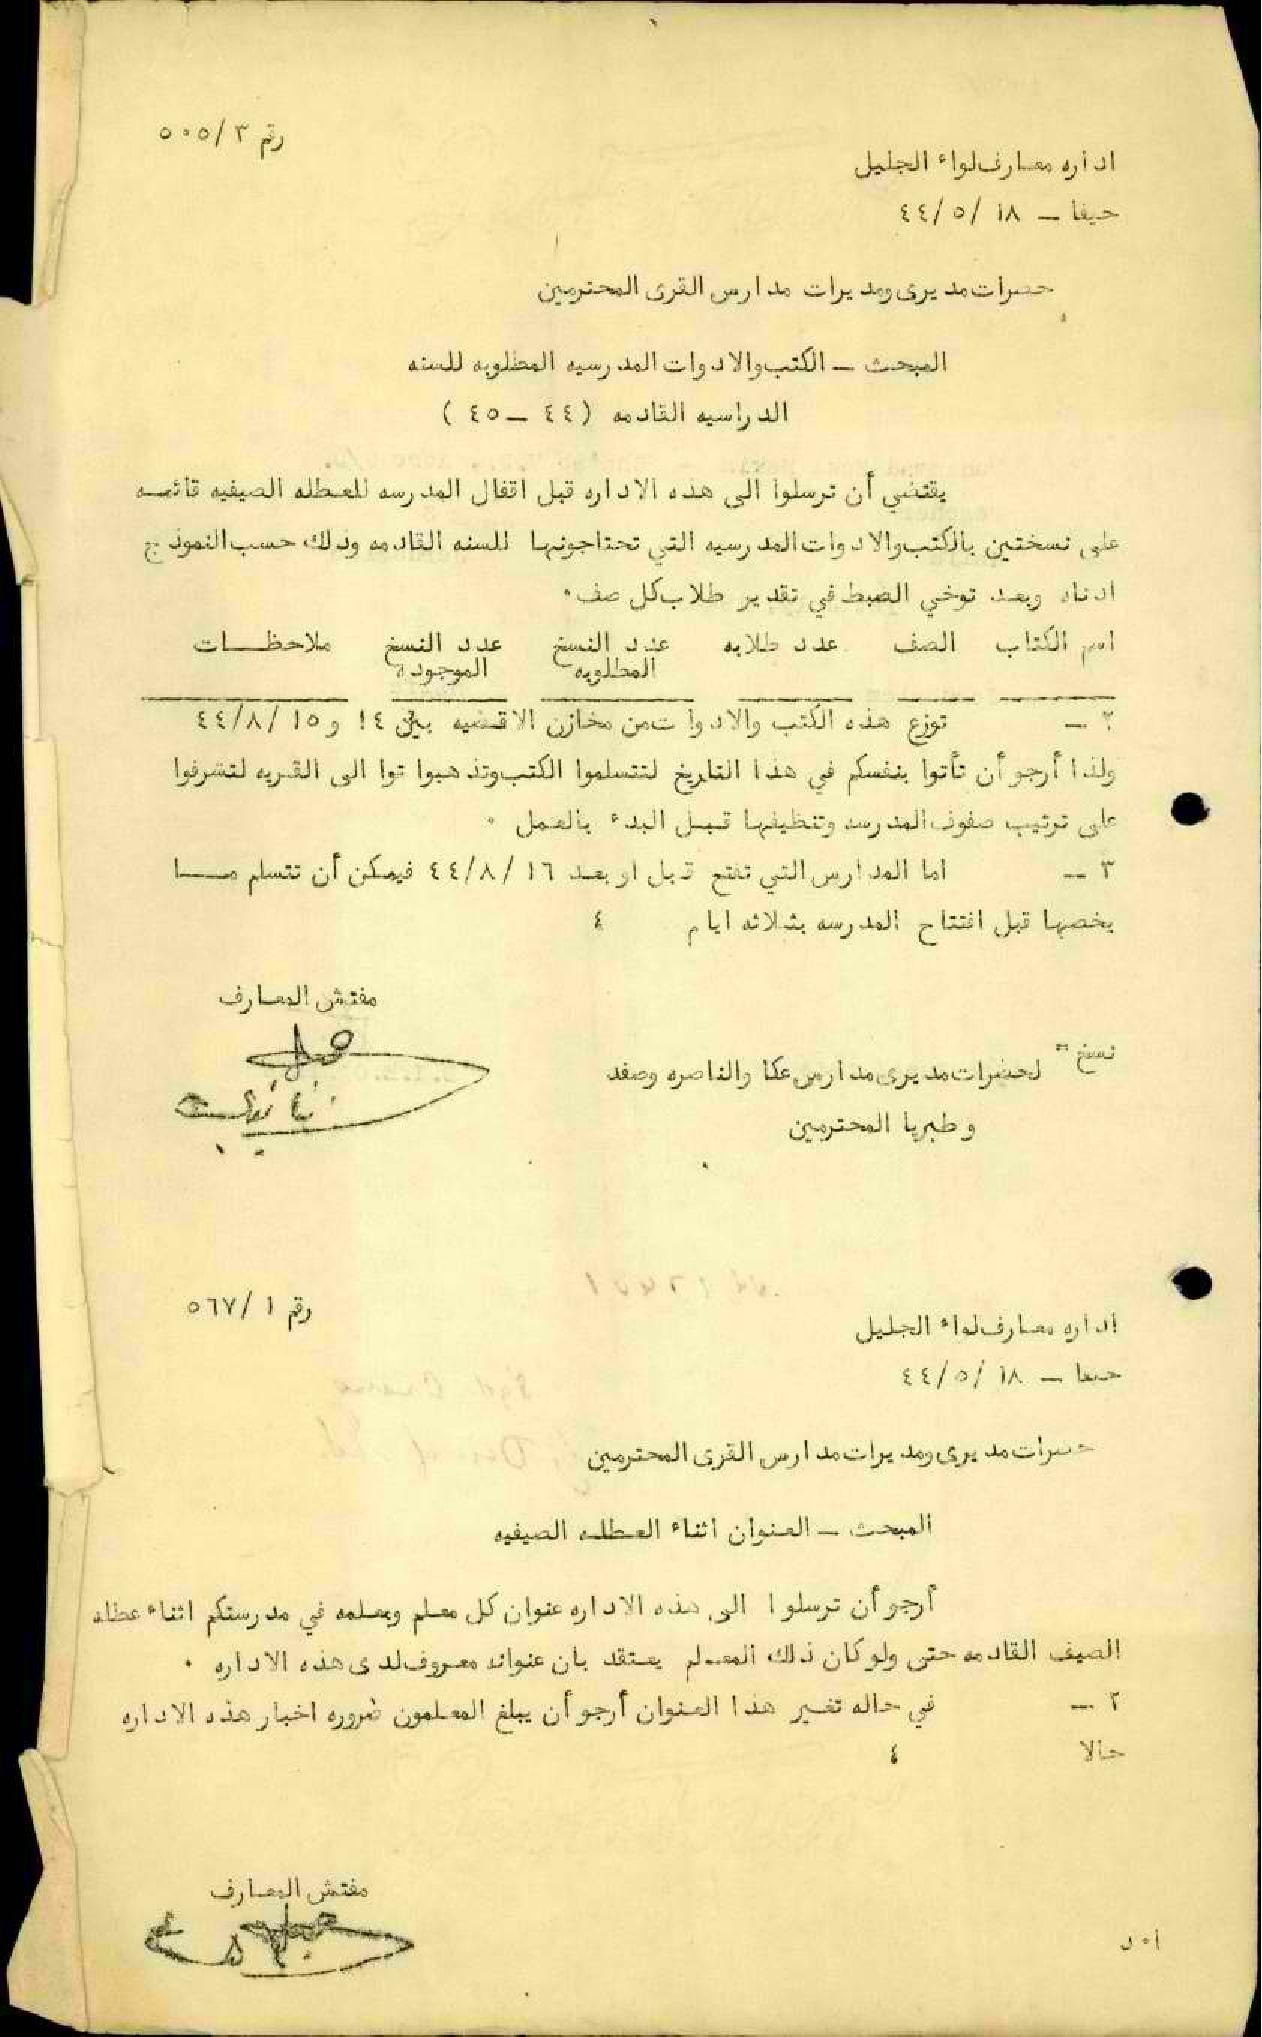 رقم ٣/ ٥٠٥
اداره معارف لواء الجليل
حيفا – ١٨ /٥ /٤٤
حضرات مديرى ومديرات مدارس القرى المحترمين
المبحث – الكتب والادوات المدرسيه المطلوبه للسنه
الدراسيه القادمه (٤٤ – ٤٥ )
يقتضي أن ترسلوا الى هذه الاداره قبل اقفال المدرسه للعطله الصيفيه قائمه
على نسختين بالكتب والادوات المدرسيه التي تحتاجونها للسنه القادمه وذلك حسب النموذج
ادناه وبعد توخي الضبط في تقدير طلاب كل صف ٠
اسم الكتاب الصف عدد طلابه عدد النسخ المطلوبه عدد النسخ الموجوده ملاحظات
٢ – توزع هذه الكتب والادوات من مخازن الاقضيه بين ١٤ و ١٥ /٨ /٤٤
ولذا أرجو أن تأتوا بنفسكم في هذا التاريخ لتتسلموا الكتب وتذهبوا توا الى القريه لتشرفوا
على ترتيب صفوف المدرسه وتنظيفها قبل البدء بالعمل ٠
٣ – اما المدارس التي تفتح قبل او بعد ١٦ /٨ /٤٤ فيمكن أن تتسلم ما
يخصها قبل افتتاح المدرسه بثلاثه ايام ٤
مفتش المعارف
نسخ " لحضرات مديرى مدارس عكا والناصره وصفد
وطبريا المحترمين
رقم ١ /٥٦٧
اداره معارف لواء الجليل
حيفا – ١٨ /٥ /٤٤
حضرات مديرى ومديرات مدارس القرى المحترمين
المبحث – العنوان اثناء العطله الصيفيه
أرجو أن ترسلوا الى هذه الاداره عنوان كل معلم ومعلمه في مدرستكم اثناء عطله
الصيف القادمه حتى ولو كان ذلك المعلم يعتقد بان عنوانه معروف لدى هذه الاداره ٠
٢ – في حاله تغيير هذا العنوان أرجو أن يبلغ المعلمون ضروره اخبار هذه الاداره
حالا ٤
مفتش المعارف
أ ٠ د